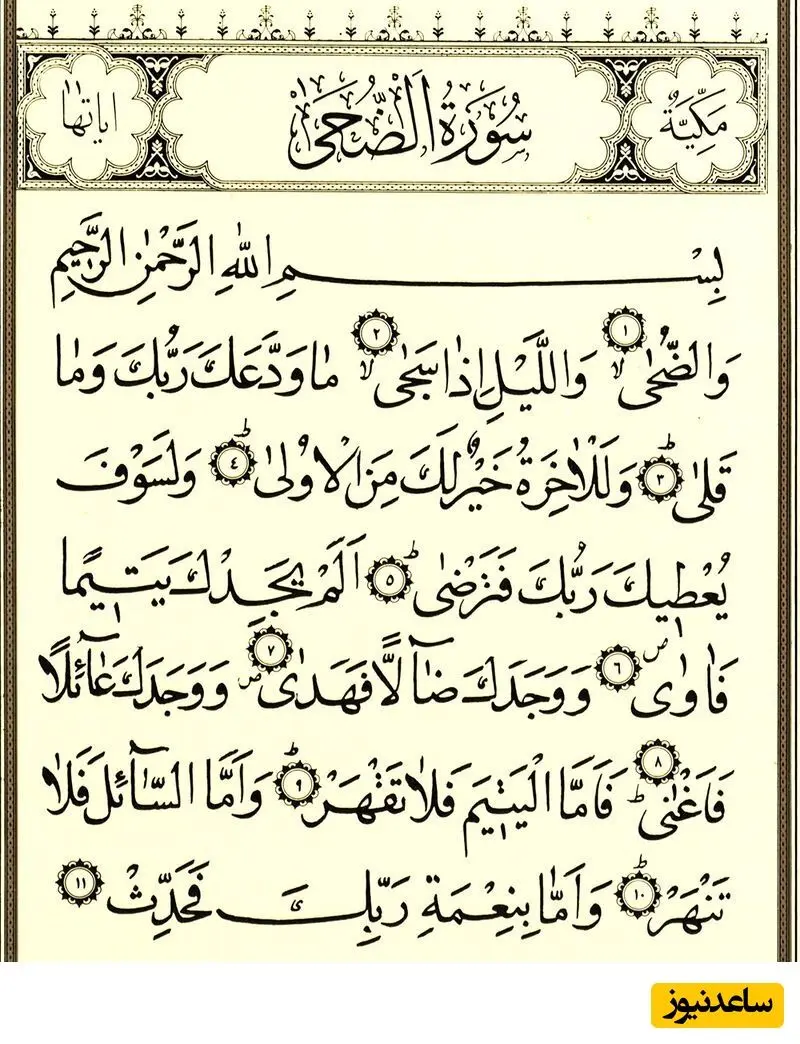 مَكِّيَّةٌ سُورَةُ الضُّحَىٰ ١١ اياتها
بِسْمِ اللهِ الرَّحْمٰنِ الرَّحِيمِ
وَالضُّحٰى ﴿١﴾ وَاللَّيْلِ اِذٰا سَجٰى ﴿٢﴾ مٰا وَدَّعَكَ رَبُّكَ وَمٰا
قَلٰى ﴿٣﴾ وَلَلْاٰخِرَةُ خَيْرٌ لَكَ مِنَ الْاُولٰى ﴿٤﴾ وَلَسَوْفَ
يُعْطِيكَ رَبُّكَ فَتَرْضٰى ﴿٥﴾ اَلَمْ يَجِدْكَ يَتِيمًا
فَاٰوٰى ﴿٦﴾ وَوَجَدَكَ ضٰٓالًّا فَهَدٰى ﴿٧﴾ وَوَجَدَكَ عٰٓائِلًا
فَاَغْنٰى ﴿٨﴾ فَاَمَّا الْيَتِيمَ فَلٰا تَقْهَرْ ﴿٩﴾ وَاَمَّا السّٰٓائِلَ فَلٰا
تَنْهَرْ ﴿١٠﴾ وَاَمّٰا بِنِعْمَةِ رَبِّكَ فَحَدِّثْ ﴿١١﴾
ساعدنیوز